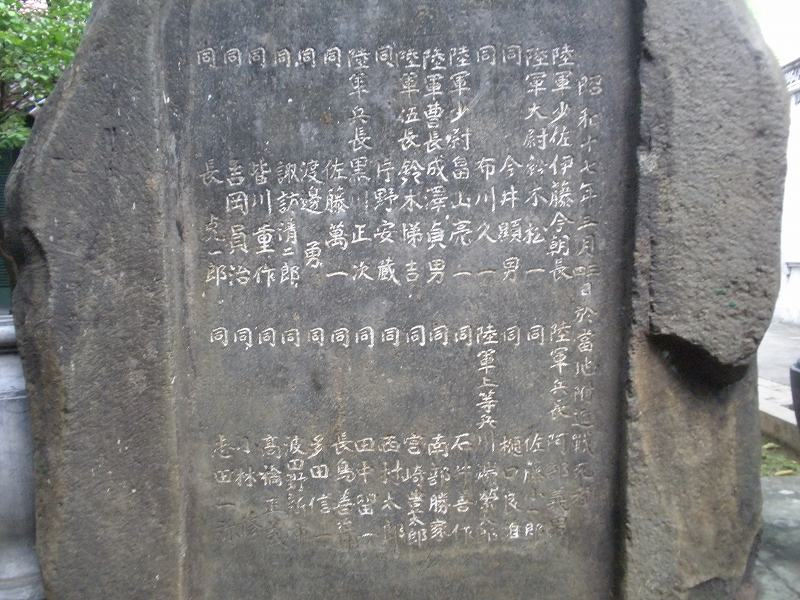 昭和十七年三月四日於當地附近戰死者
陸軍少佐伊藤今朝長
陸軍大尉鈴木松一
同 今井顯男
同 布川久一
陸軍少尉畠上亮二
陸軍曹長成澤貞男
陸軍伍長鈴木悌吉
同 片野安蔵
陸軍兵長黒川正次
同 佐藤萬一
同 渡邊勇
同 諏訪清二郎
同 皆川重作
同 吉岡員治
同 長 一郎
陸軍兵長 阿部義
同 佐藤 郎
同 樋口良
陸軍上等兵川
同 石井吾作
同 南部勝家
同 宮崎豊太郎
同 西村太郎
同 田中留一
同 長島
同 多田信一
同 波田野
同 高橋正
同 小林
同 志田一